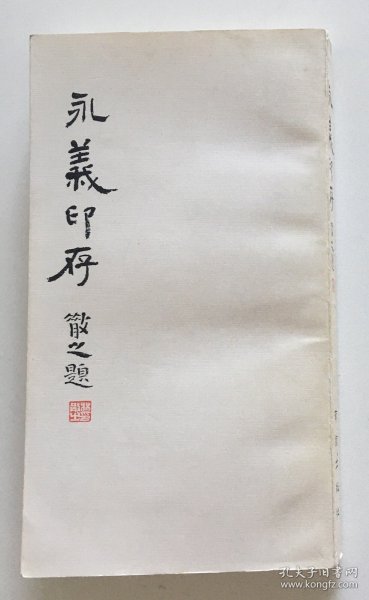 永義印存
散之題
孔夫子旧书网
www.kongfz.com